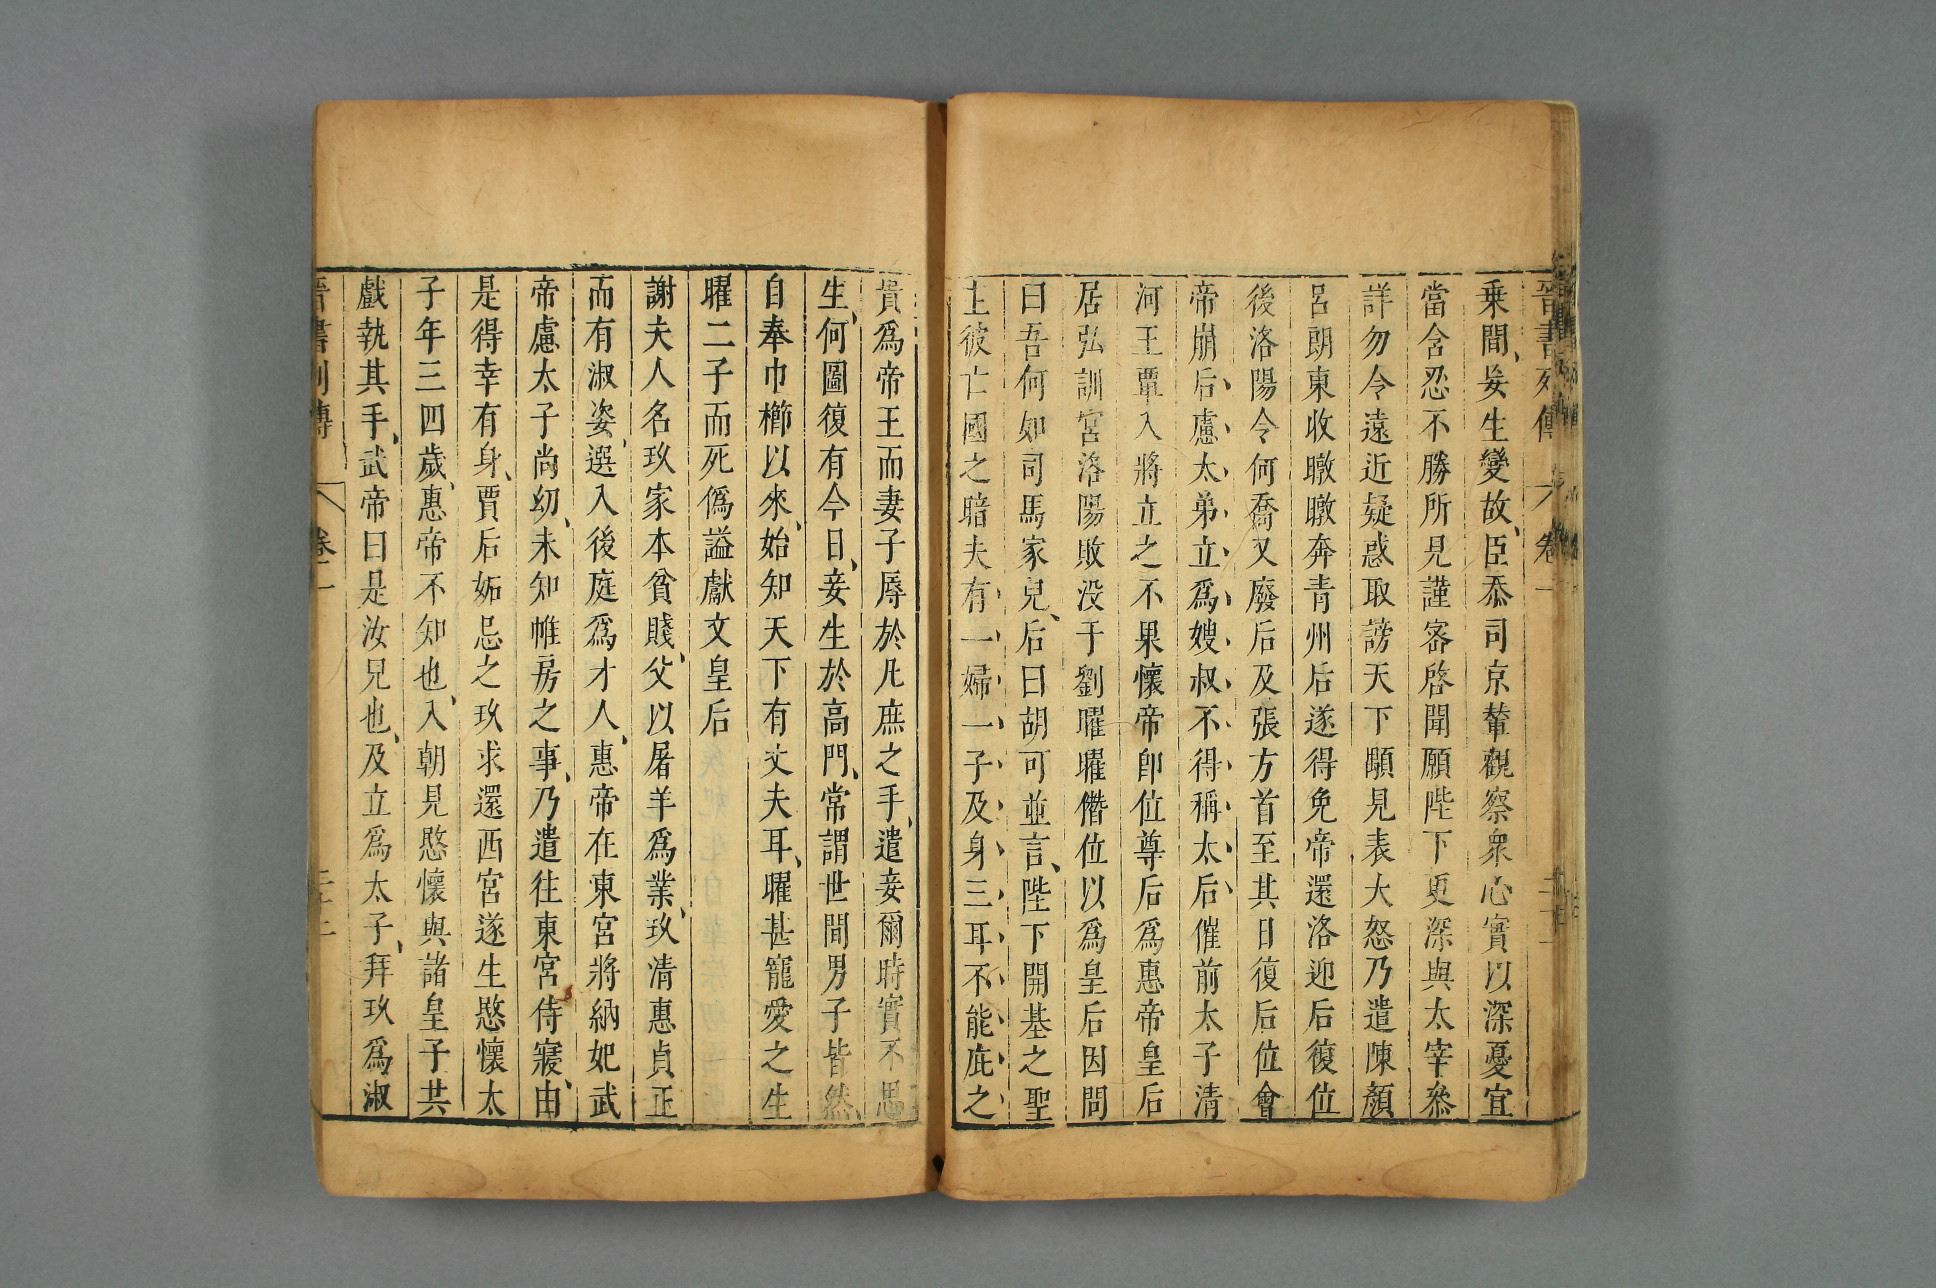 晉書列傳 卷一
乗間、妄生變故、臣忝司京輦觀察衆心實以深憂宜
當含忍不勝所見謹宻啓聞願陛下更深與太宰叅
詳勿令遠近疑惑取謗天下顒見表大怒乃遣陳顏
呂朗東收暾暾奔青州后遂得免帝還洛迎后復位
後洛陽令何喬又廢后及張方首至其日復后位會
帝崩后慮太弟立爲嫂叔不得稱太后催前太子清
河王覃入將立之不果懷帝卽位尊后爲惠帝皇后
居弘訓宮洛陽敗没于劉曜曜僭位以爲皇后因問
曰吾何如司馬家兒、后曰胡可並言、陛下開基之聖
主彼亡國之暗夫有一婦一子及身三耳不能庇之
貴爲帝王而妻子辱於凡庶之手、遣妾爾時實不思
生、何圖復有今日、妾生於高門、常謂世間男子皆然、
自奉巾櫛以來、始知天下有丈夫耳、曜甚寵愛之生
曜二子而死僞謚獻文皇后
謝夫人名玖家本貧賤、父以屠羊爲業、玖清惠貞正
而有淑姿、選入後庭爲才人、惠帝在東宮將納妃武
帝慮太子尚幼、未知帷房之事、乃遣往東宮侍寢、由
是得幸有身、賈后妬忌之玖求還西宮遂生愍懷太
子年三四歲、惠帝不知也、入朝見愍懷與諸皇子共
戲執其手、武帝曰是汝兒也、及立爲太子、拜玖爲淑
晉書列傳 卷一